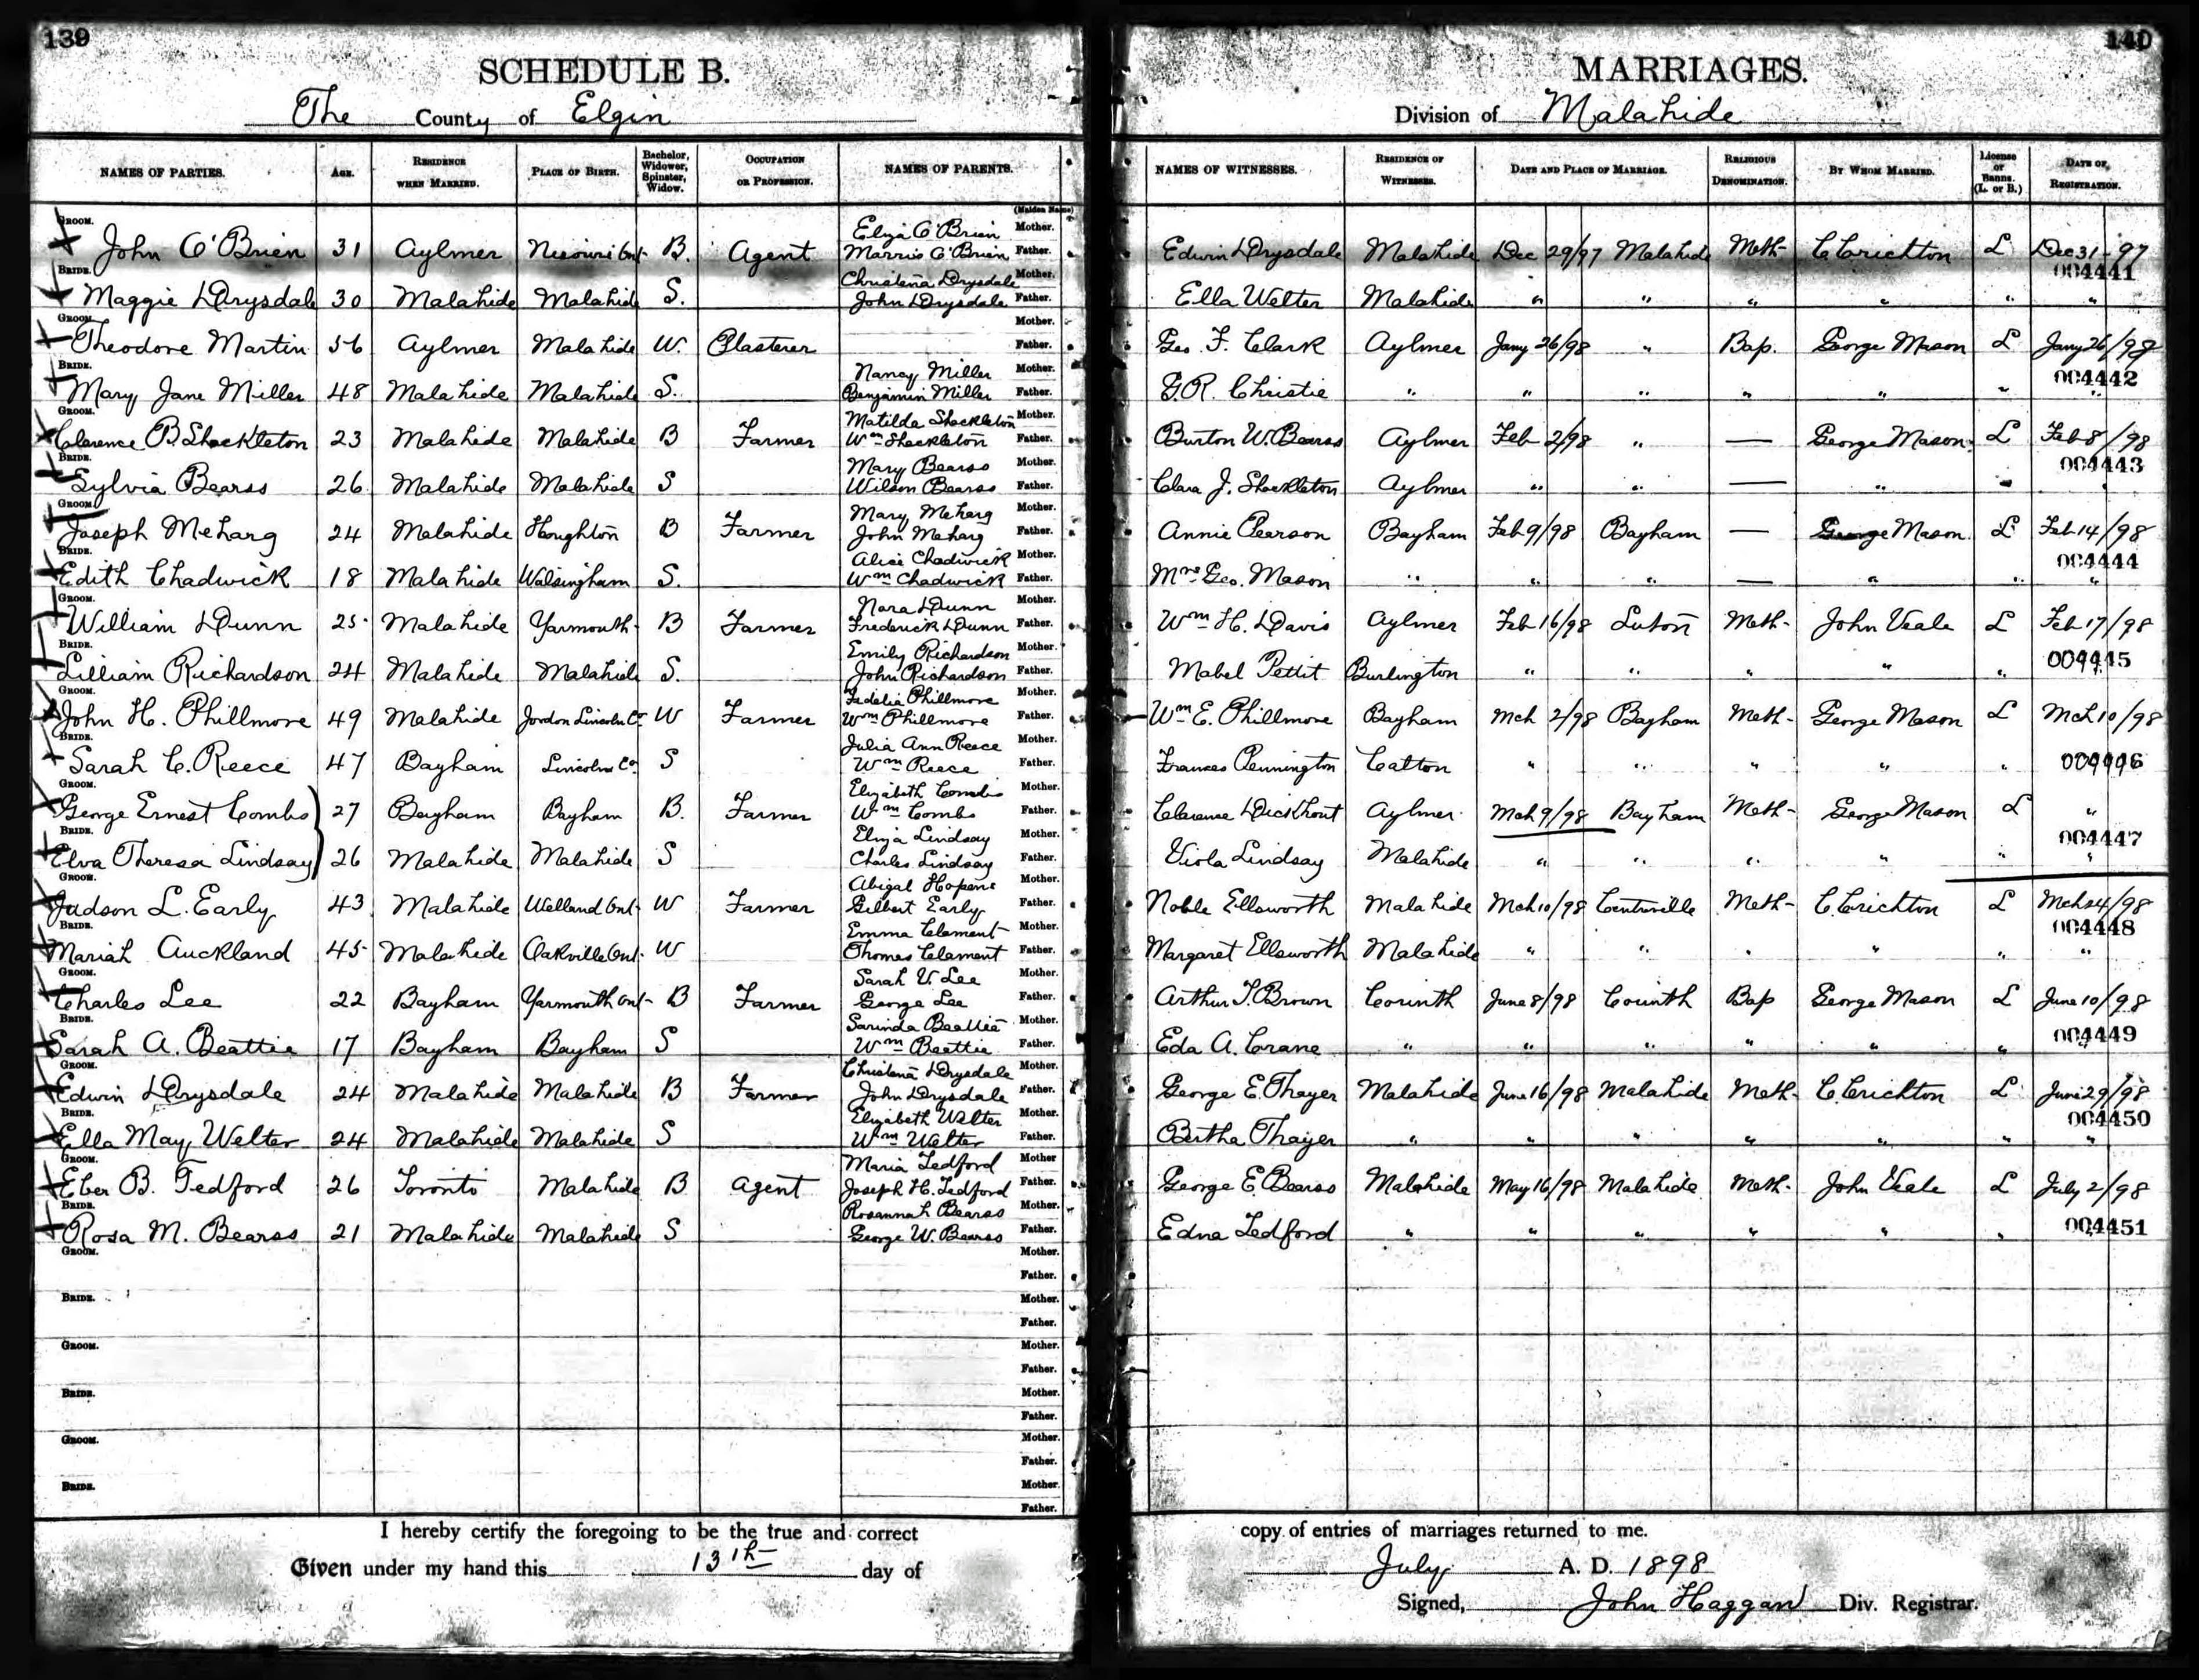 139
SCHEDULE B.
The County of Elgin
NAMES OF PARTIES. AGE. RESIDENCE WHEN MARRIED. PLACE OF BIRTH. Bachelor, Widower, Spinster, Widow. OCCUPATION OR PROFESSION. NAMES OF PARENTS.
(Maiden Name)
GROOM. John O'Brien 31 Aylmer Nissouri Ont. B. Agent Eliza O'Brien Mother. Morris O'Brien Father.
BRIDE. Maggie Drysdale 30 Malahide Malahide S. Christena Drysdale Mother. John Drysdale Father.
GROOM. Theodore Martin 56 Aylmer Malahide W. Plasterer Mother. Father.
BRIDE. Mary Jane Miller 48 Malahide Malahide S. Nancy Miller Mother. Benjamin Miller Father.
GROOM. Clarence B. Shackleton 23 Malahide Malahide B Farmer Matilda Shackleton Mother. Wm Shackleton Father.
BRIDE. Sylvia Bearss 26 Malahide Malahide S Mary Bearss Mother. Wilson Bearss Father.
GROOM. Joseph Meharg 24 Malahide Houghton B Farmer Mary Meharg Mother. John Meharg Father.
BRIDE. Edith Chadwick 18 Malahide Walsingham S. Alice Chadwick Mother. Wm Chadwick Father.
GROOM. William Dunn 25 Malahide Yarmouth B Farmer Nora Dunn Mother. Frederick Dunn Father.
BRIDE. Lilliam Richardson 24 Malahide Malahide S. Emily Richardson Mother. John Richardson Father.
GROOM. John H. Phillmore 49 Malahide Jordon Lincoln Co W Farmer Fadelia Phillmore Mother. Wm Phillmore Father.
BRIDE. Sarah C. Reece 47 Bayham Lincoln Co S Julia Ann Reece Mother. Wm Reece Father.
GROOM. George Ernest Combs 27 Bayham Bayham B. Farmer Elizabeth Combs Mother. Wm Combs Father.
BRIDE. Elva Theresa Lindsay 26 Malahide Malahide S Eliza Lindsay Mother. Charles Lindsay Father.
GROOM. Judson L. Early 43 Malahide Welland Ont. W Farmer Abigal Mother. Gilbert Early Father.
BRIDE. Mariah Auckland 45 Malahide Oakville Ont. W Emma Clament Mother. Thomas Clament Father.
GROOM. Charles Lee 22 Bayham Yarmouth Ont- B Farmer Sarah V. Lee Mother. George Lee Father.
BRIDE. Sarah A. Beattie 17 Bayham Bayham S Sarinda Beattie Mother. Wm Beattie Father.
GROOM. Edwin Drysdale 24 Malahide Malahide B Farmer Christena Drysdale Mother. John Drysdale Father.
BRIDE. Ella May Welter 24 Malahide Malahide S Elizabeth Welter Mother. Wm Welter Father.
GROOM. Eber B. Tedford 26 Toronto Malahide B Agent Maria Tedford Mother Joseph H. Tedford Father.
BRIDE. Rosa M. Bearss 21 Malahide Malahide S Rosannah Bearss Mother. George W. Bearss Father.
GROOM. Mother. Father.
BRIDE. Mother. Father.
GROOM. Mother. Father.
BRIDE. Mother. Father.
GROOM. Mother. Father.
BRIDE. Mother. Father.
I hereby certify the foregoing to be the true and correct
Given under my hand this 13th day of
140
MARRIAGES.
Division of Malahide
NAMES OF WITNESSES. RESIDENCE OF WITNESSES. DATE AND PLACE OF MARRIAGE. RELIGIOUS DENOMINATION. BY WHOM MARRIED. License or Banns. (L. or B.) DATE OF REGISTRATION.
Edwin Drysdale Malahide Dec 29/97 Malahide Meth- C Crichton L Dec 31-97
004441
Ella Welter Malahide " " " " " "
Geo. F. Clark Aylmer Jany 26/98 " Bap. George Mason L Jany 26/98
004442
F.R. Christie " " " " " " "
Burton W. Bearss Aylmer Feb 2/98 " — George Mason L Feb 8/98
004443
Clara J. Shackleton Aylmer " " — " " "
Annie Pearson Bayham Feb 9/98 Bayham — George Mason L Feb 14/98
004444
Mrs Geo. Mason " " " — " " "
Wm H. Davis Aylmer Feb 16/98 Luton Meth- John Veale L Feb 17/98
004445
Mabel Pettit Burlington " " " " "
Wm E. Phillmore Bayham Mch 2/98 Bayham Meth- George Mason L Mch 10/98
004446
Frances Pennington Calton " " " " "
Clarence Dickhout Aylmer Mch 9/98 Bayham Meth- George Mason L "
004447
Viola Lindsay Malahide " " " " " "
Noble Ellsworth Malahide Mch 10/98 Centreville Meth- C. Crichton L Mch 24/98
004448
Margaret Ellsworth Malahide " " " " " "
Arthur T. Brown Corinth June 8/98 Corinth Bap George Mason L June 10/98
004449
Eda A. Crane " " " " " "
George E. Thayer Malahide June 16/98 Malahide Meth- C. Crichton L June 29/98
004450
Bertha Thayer " " " " " " "
George E. Bearss Malahide May 16/98 Malahide Meth- John Veale L July 2/98
004451
Edna Tedford " " " " " "
copy of entries of marriages returned to me.
July A. D. 1898
Signed, John Haggan Div. Registrar.